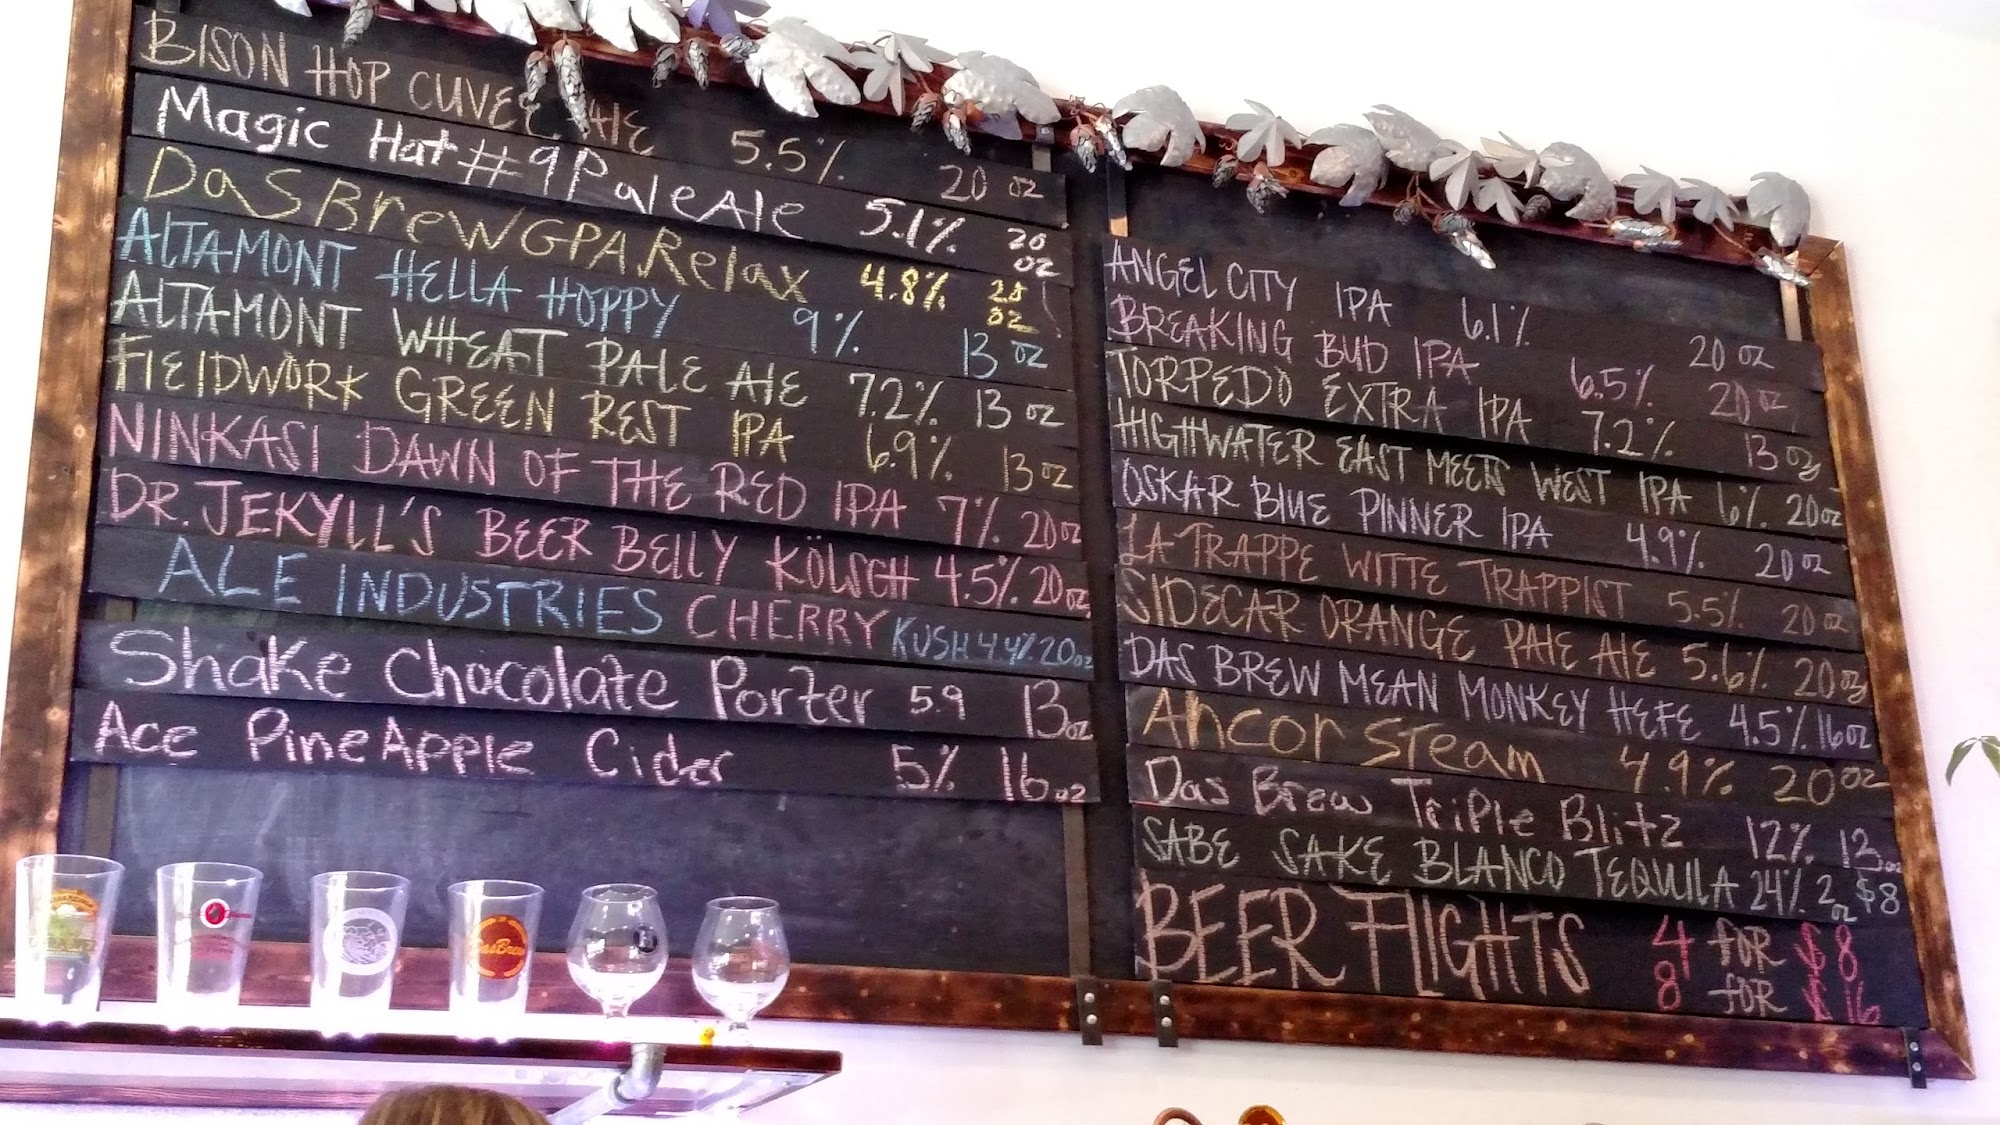 BISON HOP CUVEE ALE 5.5% 20 oz
Magic Hat #9 Pale Ale 5.1% 20 oz
Das Brew GPA Relax 4.8% 20 oz
ALTAMONT HELLA HOPPY 9% 13 oz
ALTAMONT WHEAT PALE ALE 7.2% 13 oz
FIELDWORK GREEN REST IPA 6.9% 13 oz
NINKASI DAWN OF THE RED IPA 7% 20 oz
DR. JEKYLL'S BEER BELLY KÖLSCH 4.5% 20 oz
ALE INDUSTRIES CHERRY KUSH 4.4% 20 oz
Shake Chocolate Porter 5.9 13 oz
Ace PineApple Cider 5% 16 oz
ANGEL CITY IPA 6.1% 20 oz
BREAKING BUD IPA 6.5% 20 oz
TORPEDO EXTRA IPA 7.2% 13 oz
HIGHWATER EAST MEETS WEST IPA 6% 20 oz
OSKAR BLUE PINNER IPA 4.9% 20 oz
LA TRAPPE WITTE TRAPPIST 5.5% 20 oz
SIDECAR ORANGE PALE ALE 5.6% 20 oz
DAS BREW MEAN MONKEY HEFE 4.5% 16 oz
Ancor Steam 4.9% 20 oz
Das Brew Triple Blitz 12% 13 oz
SABE SAKE BLANCO TEQUILA 24% 2 oz $8
BEER FLIGHTS 4 for $8
8 for $16
Das Brew